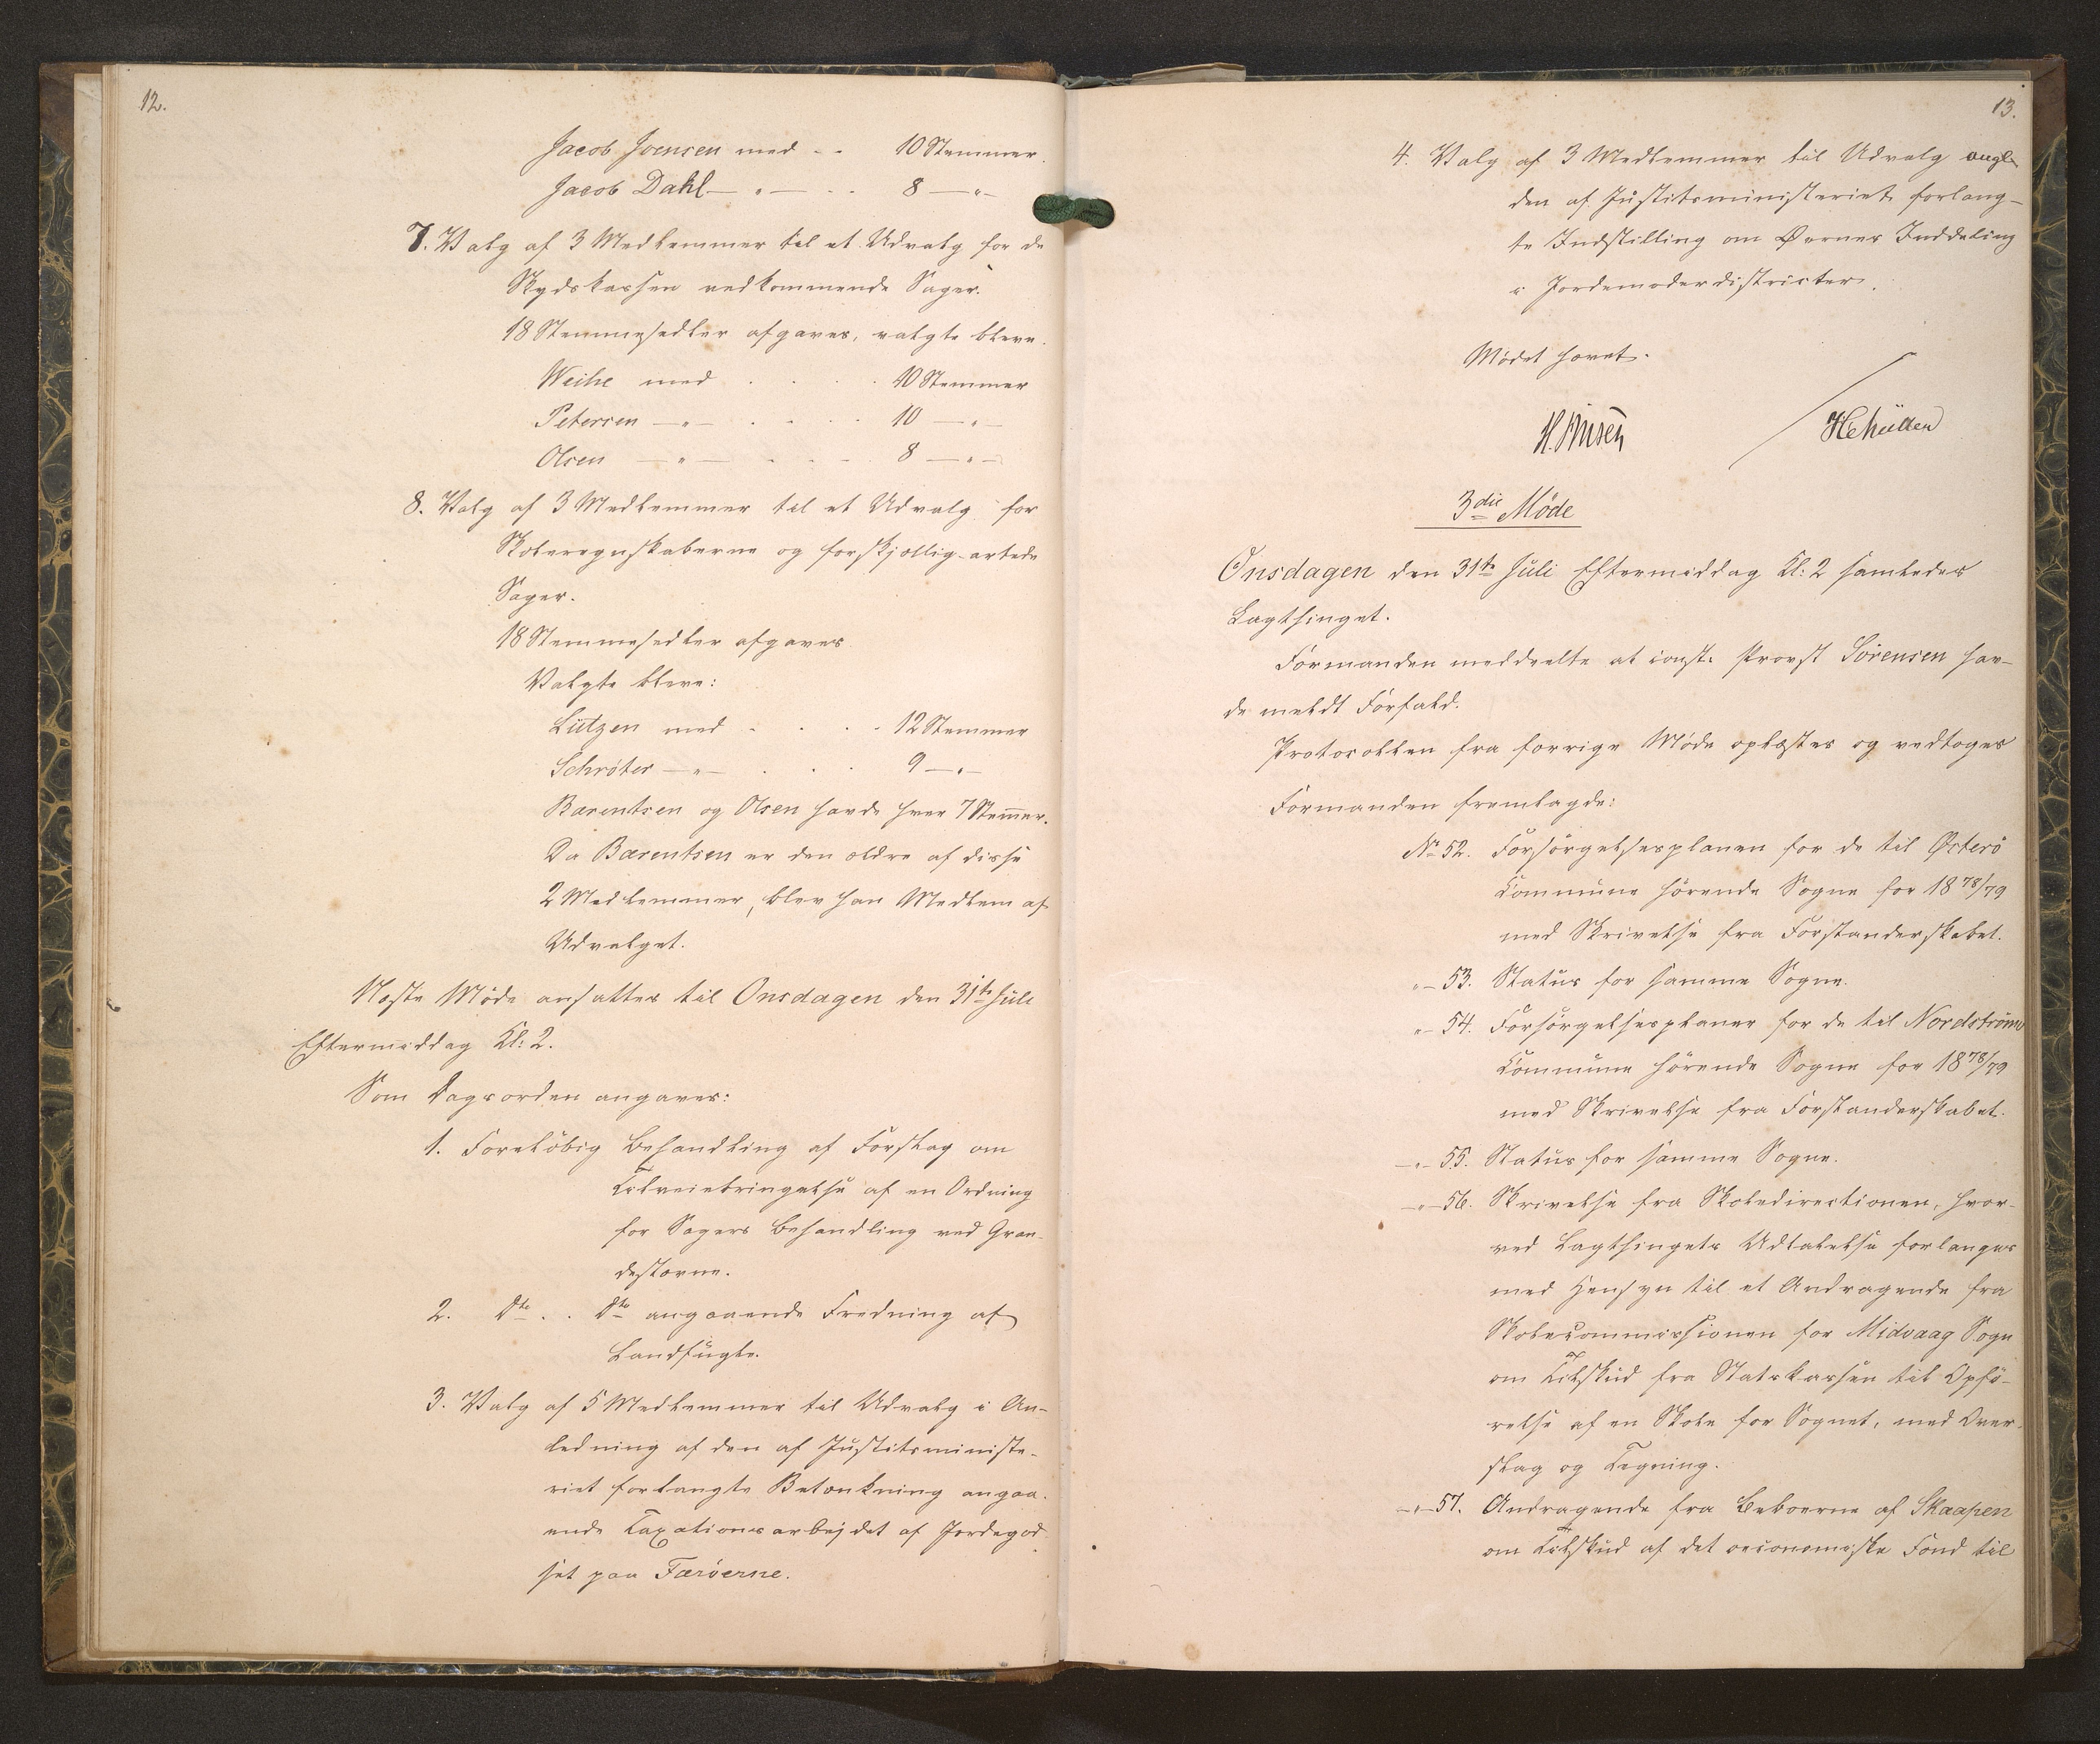 12.
Jacob Joensen med - - 10 Stemmer.
Jacob Dahl — " — - - 8 — " —
7. Valg af 3 Medlemmer til et Udvalg for de
Skydskassen vedkommende Sager.
18 Stemmesedler afgaves, valgte bleve.
Weihe med . . . . 10 Stemmer
Petersen — " — . . . 10 — " —
Olsen — " — . . . . 8 — " —
8. Valg af 3 Medlemmer til et Udvalg for
Skoleregnskaberne og forskjellig-artede
Sager.
18 Stemmesedler afgaves
Valgte bleve:
Lützen med . . . 12 Stemmer
Schröter — " — . . . 9 — " —
Bærentsen og Olsen havde hver 7 Stemmer.
Da Bærentsen er den ældre af disse
2 Medlemmer, blev han Medlem af
Udvalget.
Næste Møde ansattes til Onsdagen den 31te Juli
Eftermiddag Kl: 2.
Som Dagsorden angaves:
1. Foreløbig Behandling af Forslag om
Tilveiebringelse af en Ordning
for Sagers Behandling ved Gran-
destævne.
2. Dto . . Dto angaaende Fredning af
Landfugle.
3. Valg af 5 Medlemmer til Udvalg i An-
ledning af den af Justitsministe-
riet forlangte Betænkning angaa-
ende Taxationsarbejdet af Jordegod-
set paa Færøerne.
13.
4. Valg af 3 Medlemmer til Udvalg angl.
den af Justitsministeriet forlang-
te Indstilling om Øernes Inddeling
i Jordemoderdistricter.
Mødet hævet.
3die Møde
Onsdagen den 31te Juli Eftermiddag Kl: 2 samledes
Lagthinget.
Formanden meddeelte at const: Provst Sørensen hav-
de meldt Forfald.
Protocollen fra forrige Møde oplæstes og vedtoges
Formanden fremlagde:
No 52. Forsørgelsesplanen for de til Østerø
Commune hørende Sogne for 1878/79
med Skrivelse fra Forstanderskabet.
" — 53. Status for samme Sogne.
" — 54. Forsørgelsesplaner for de til Nordstrømø
Commune hørende Sogne for 1878/79
med Skrivelse fra Forstanderskabet.
— " — 55. Status for samme Sogne.
— " — 56. Skrivelse fra Skoledirectionen, hvor-
ved Lagthingets Udtalelse forlanges
med Hensyn til et Andragende fra
Skolecommissionen for Midvaag Sogn
om Tilskud fra Statskassen til Opfø-
relse af en Skole for Sognet, med Over-
slag og Tegning.
— " — 57. Andragende fra Beboerne af Skaapen
om Tilskud af det oeconomiske Fond til